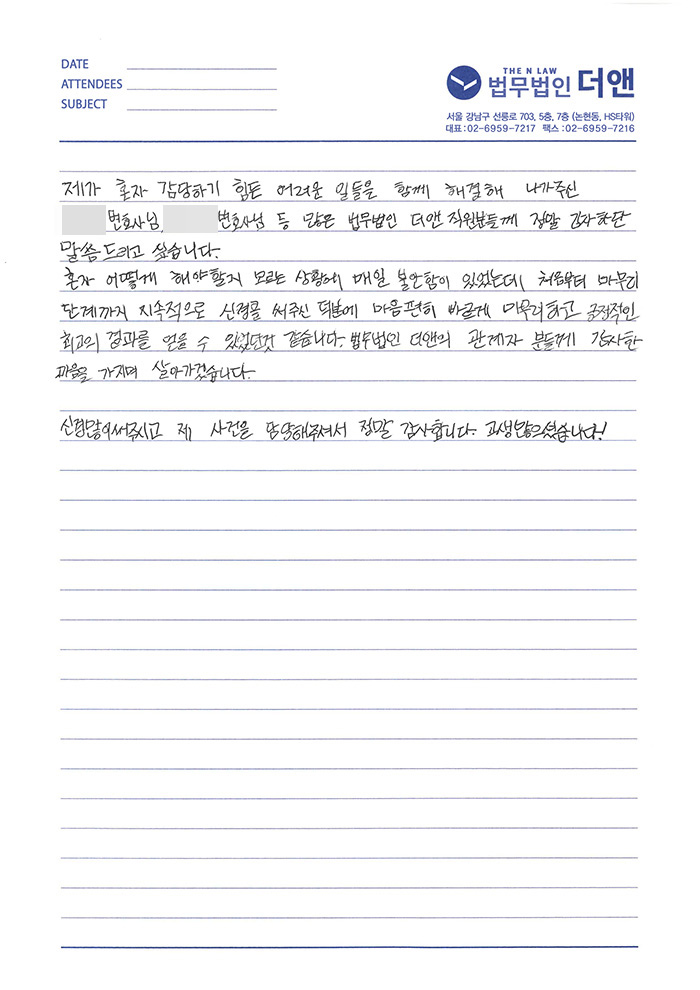 DATE
ATTENDEES
SUBJECT
THE N LAW
법무법인 더앤
서울 강남구 선릉로 703, 5층, 7층 (논현동, HS타워)
대표:02-6959-7217 팩스:02-6959-7216
제가 혼자 감당하기 힘든 어려운 일들을 함께 해결해 나가주신
변호사님, 변호사님 등 많은 법무법인 더앤 직원분들께 정말 감사하단
말씀 드리고 싶습니다.
혼자 어떻게 해야할지 모르는 상황에 매일 불안함이 있었는데, 처음부터 마무리
단계까지 지속적으로 신경을 써주신 덕분에 마음편히 바르게 마무리하고 긍정적인
최고의 결과를 얻을 수 있었던것 같습니다. 법무법인 더앤의 관계자 분들께 감사한
마음을 가지며 살아가겠습니다.
신경많이써주시고 제 사건을 담당해주셔서 정말 감사합니다. 고생많으셨습니다!